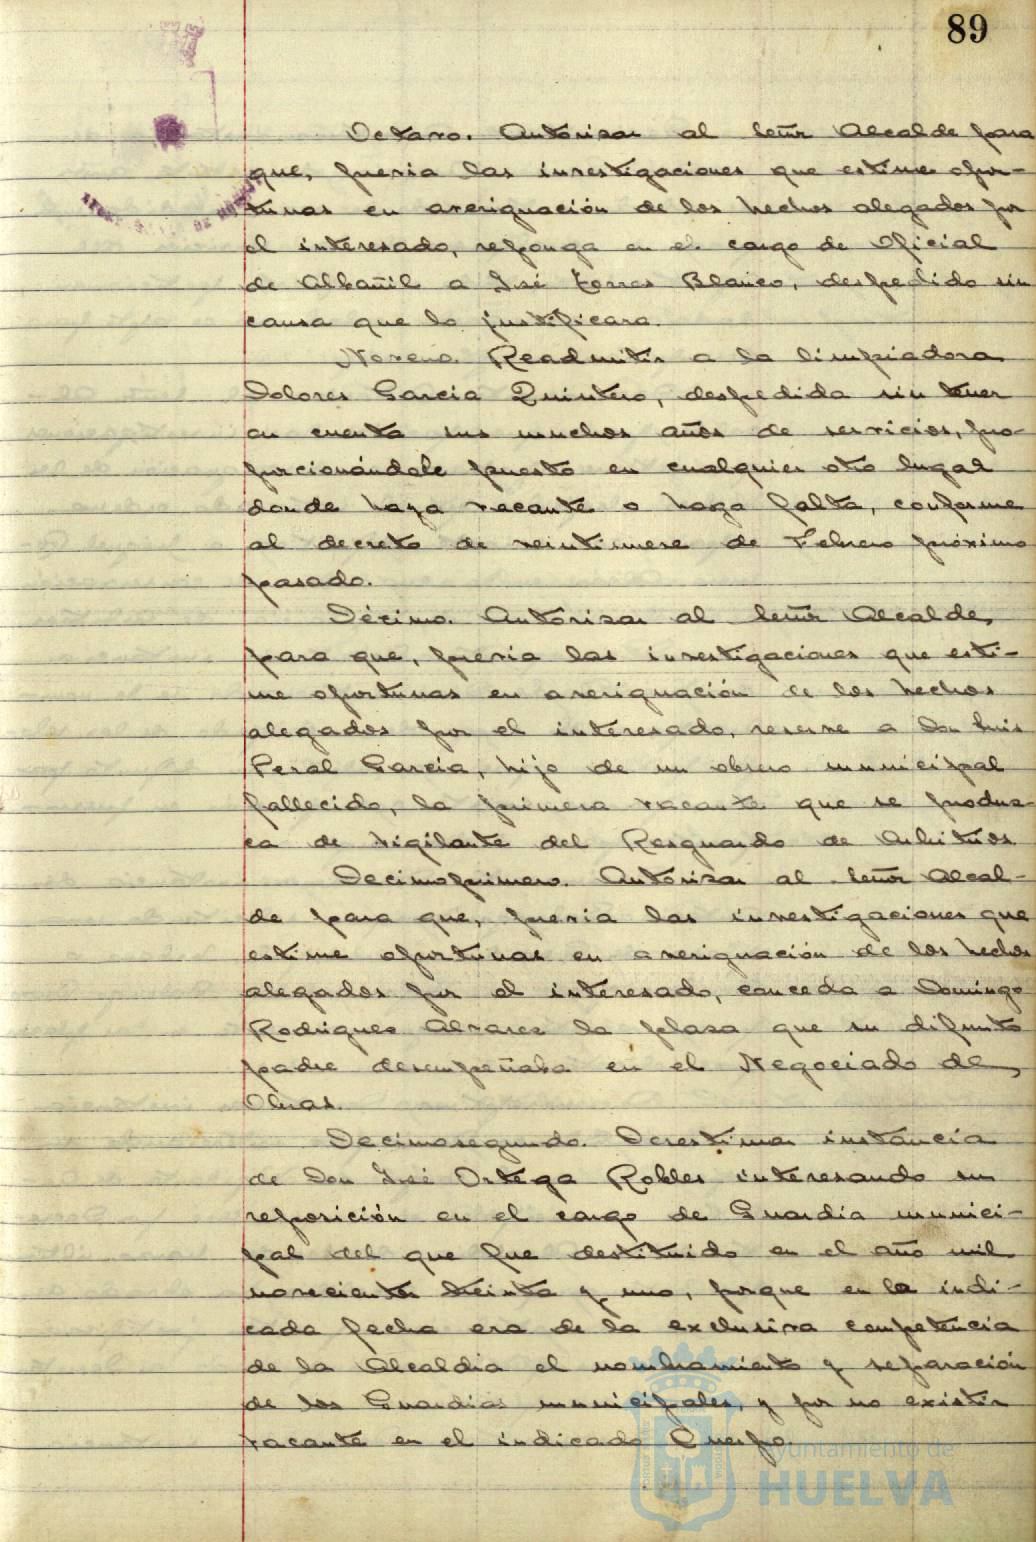 89
Octavo. Autorizar al Señor Alcalde para
que, previa las investigaciones que estime opor-
tunas en averiguación de los hechos alegados por
el interesado, reponga en el cargo de Oficial
de Albañil a José Torres Blanco, despedido sin
causa que lo justificara.
Noveno. Readmitir a la limpiadora
Dolores García Quintero, despedida sin tener
en cuenta sus muchos años de servicios, pro-
porcionándole puesto en cualquier otro lugar
donde haya vacante o haga falta, conforme
al decreto de veintinueve de Febrero próximo
pasado.
Décimo. Autorizar al Señor Alcalde,
para que, previa las investigaciones que esti-
me oportunas en averiguación de los hechos
alegados por el interesado, reserve a Don Luis
Peral García, hijo de un obrero municipal
fallecido, la primera vacante que se produz-
ca de vigilante del Resguardo de Arbitrios
Decimoprimero. Autorizar al Señor Alcal-
de para que, previa las investigaciones que
estime oportunas en averiguación de los hechos
alegados por el interesado, conceda a Domingo
Rodríguez Alvarez la plaza que su difunto
padre desempeñaba en el Negociado de
Obras.
Decimosegundo. Desestimar instancia
de Don José Ortega Robles interesando su
reposición en el cargo de Guardia munici-
pal del que fue destituido en el año mil
novecientos treinta y uno, porque en la indi-
cada fecha era de la exclusiva competencia
de la Alcaldía el nombramiento y separación
de los Guardias municipales, y por no existir
vacante en el indicado Cuerpo
Ayuntamiento de
HUELVA